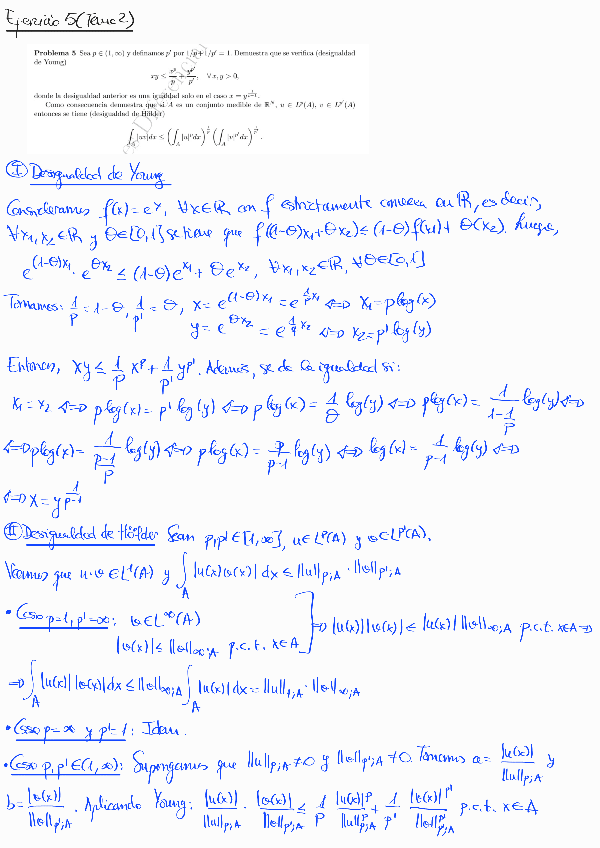 Ejercicio 5 (Tema 2)
Problema 5 Sea p ∈ (1, ∞) y definamos p' por 1/p + 1/p' = 1. Demuestra que se verifica (desigualdad
de Young)
xy ≤ x^p/p + y^p'/p', ∀x, y > 0,
donde la desigualdad anterior es una igualdad solo en el caso x = y^(1/(p-1)).
Como consecuencia demuestra que si A es un conjunto medible de ℝ^N, u ∈ L^p(A), v ∈ L^p'(A)
entonces se tiene (desigualdad de Hölder)
∫_A |uv|dx ≤ (∫_A |u|^p dx)^(1/p) (∫_A |v|^p' dx)^(1/p').
I Desigualdad de Young
Consideramos f(x) = e^x, ∀x∈ℝ con f estrictamente convexa en ℝ, es decir,
∀x₁,x₂∈ℝ y θ∈[0,1] se tiene que f((1-θ)x₁+θx₂) ≤ (1-θ)f(x₁) + θ(x₂). Luego,
e^((1-θ)x₁) · e^(θx₂) ≤ (1-θ)e^(x₁) + θe^(x₂), ∀x₁,x₂∈ℝ, ∀θ∈[0,1]
Tomamos: 1/p = 1-θ, 1/p' = θ, x = e^((1-θ)x₁) = e^(1/p x₁) ⟺ x₁ = p log(x)
y = e^(θx₂) = e^(1/q x₂) ⟺ x₂ = p' log(y)
Entonces, xy ≤ 1/p x^p + 1/p' y^p'. Además, se da la igualdad si:
x₁ = x₂ ⟺ p log(x) = p' log(y) ⟺ p log(x) = 1/θ log(y) ⟺ p log(x) = 1/(1-1/p) log(y) ⟺
⟺ p log(x) = 1/((p-1)/p) log(y) ⟺ p log(x) = p/(p-1) log(y) ⟺ log(x) = 1/(p-1) log(y) ⟺
⟺ x = y^(1/(p-1))
II Desigualdad de Hölder Sean p,p'∈[1,∞], u∈L^p(A) y v∈L^p'(A).
Veamos que u·v ∈ L¹(A) y ∫_A |u(x)v(x)| dx ≤ ||u||p;A · ||v||p';A
• Caso p=1, p'=∞: v∈L^∞(A)
|v(x)| ≤ ||v||∞;A p.c.t. x∈A ⟹ |u(x)||v(x)| ≤ |u(x)| ||v||∞;A p.c.t. x∈A ⟹
⟹ ∫_A |u(x)||v(x)| dx ≤ ||v||∞;A ∫_A |u(x)| dx = ||u||1;A · ||v||∞;A
• Caso p=∞ y p'=1: Idem.
• Caso p,p'∈(1,∞): Supongamos que ||u||p;A ≠ 0 y ||v||p';A ≠ 0. Tomamos a = |u(x)|/||u||p;A y
b = |v(x)|/||v||p';A. Aplicando Young: |u(x)|/||u||p;A · |v(x)|/||v||p';A ≤ 1/p |u(x)|^p/||u||^p p;A + 1/p' |v(x)|^p'/||v||^p' p';A p.c.t. x∈A